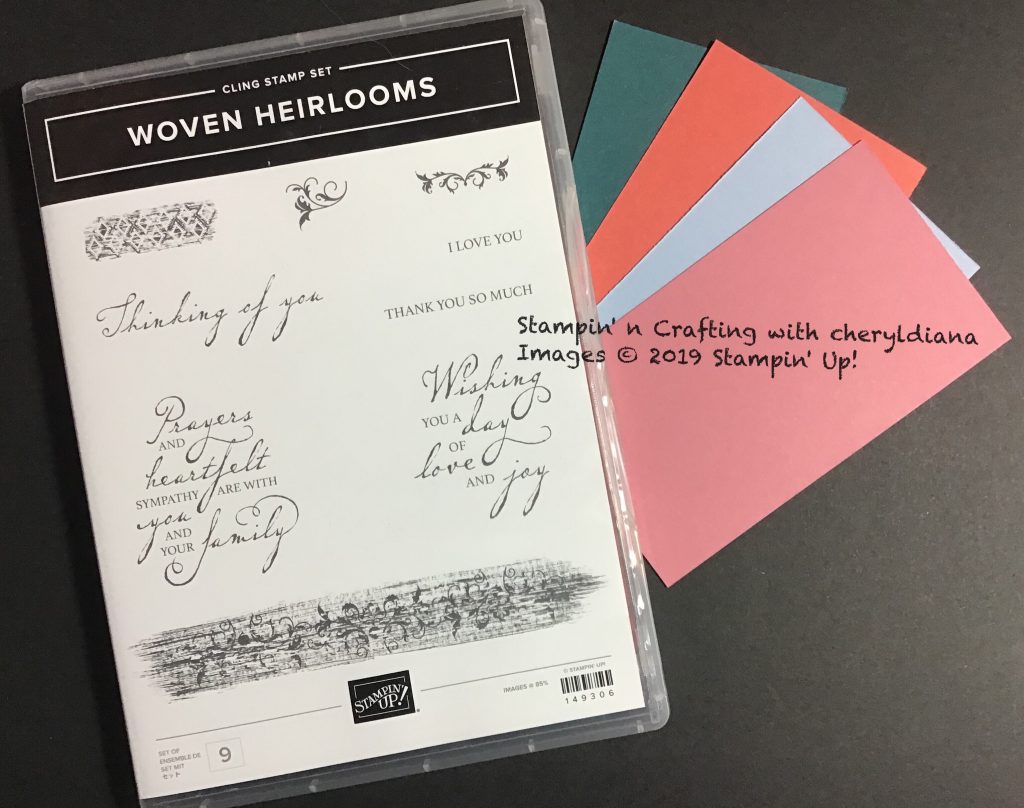 CLING STAMP SET
WOVEN HEIRLOOMS
I LOVE YOU
Thinking of you
THANK YOU SO MUCH
Stampin' n Crafting with cheryldiana
Images © 2019 Stampin' Up!
Prayers
AND
heartfelt
SYMPATHY ARE WITH
you
AND
YOUR family
Wishing
YOU A day
OF
love
AND joy
STAMPIN' UP!®
© STAMPIN' UP!
IMAGES @ 95%
149306
SET OF
ENSEMBLE DE
SET MIT
セット
9